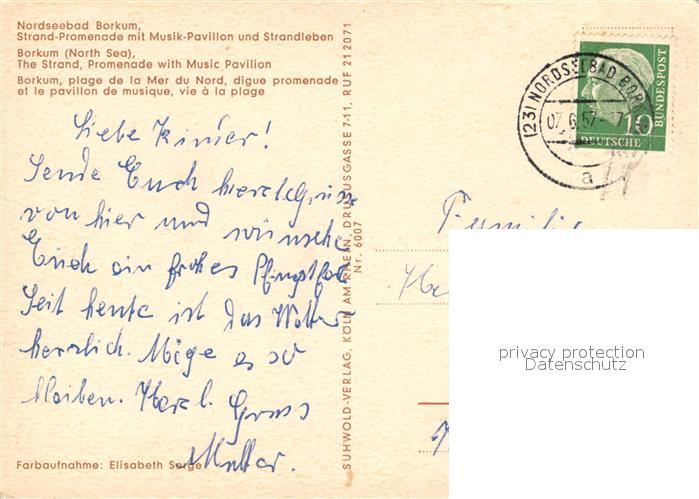 Nordseebad Borkum,
Strand-Promenade mit Musik-Pavillon und Strandleben
Borkum (North Sea),
The Strand, Promenade with Music Pavilion
Borkum, plage de la Mer du Nord, digue promenade
et le pavillon de musique, vie à la plage
Liebe Kinder!
Sende Euch herzl. Grüsse
von hier und wünsche
Euch ein frohes Pfingstfest
Seit heute ist das Wetter
herrlich. Möge es so
bleiben. Herzl. Gruss
Mutter.
Farbaufnahme: Elisabeth Sorge
SUHWOLD-VERLAG, KÖLN AM RHEIN, DRUSUSGASSE 7-11, RUF 212071
Nr. 6007
(23) NORDSEEBAD BORKUM
07.6.57.-7
a
10
DEUTSCHE
BUNDESPOST
Familie
privacy protection
Datenschutz